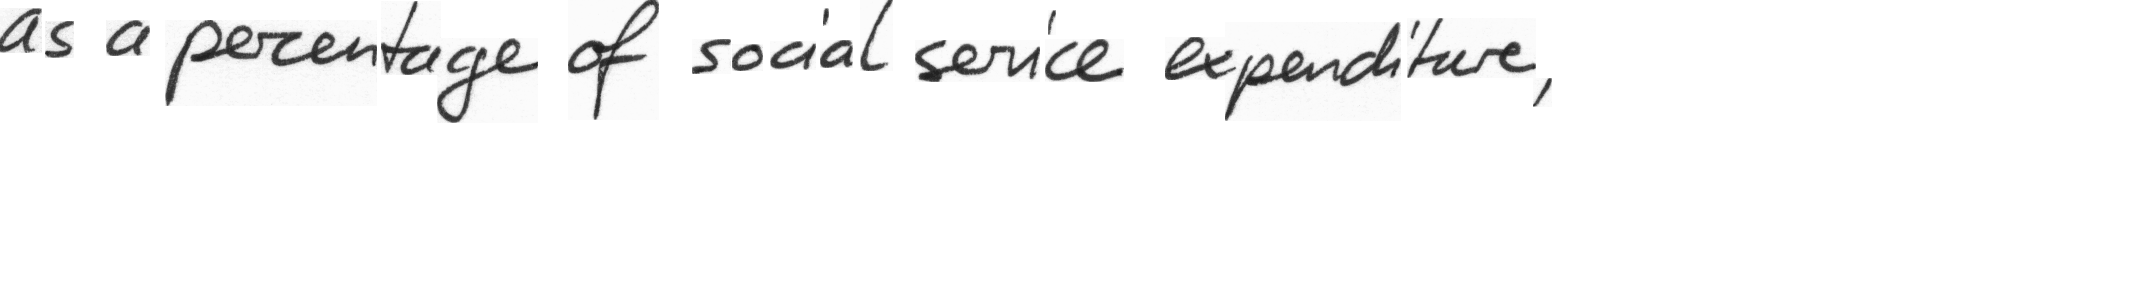 as a percentage of social service expenditure,